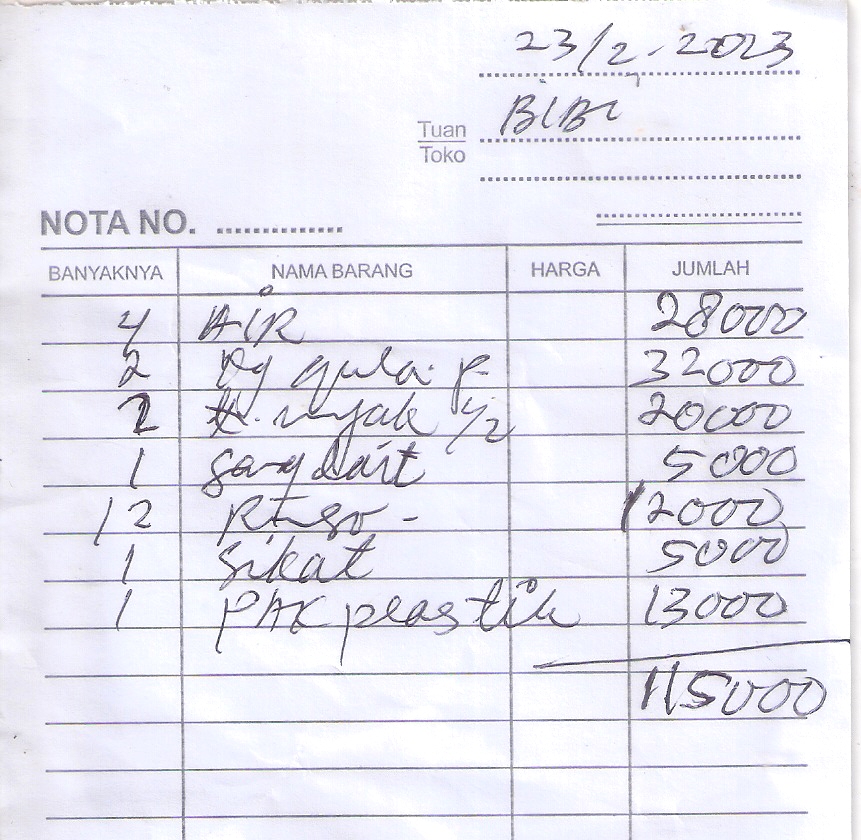 23/2-2023
Tuan BIBI
Toko
NOTA NO. ..............
BANYAKNYA NAMA BARANG HARGA JUMLAH
4 AIR 28000
2 kg gula p 32000
2 1/2 20000
1 5000
12 Rinso - 12000
1 Sikat 5000
1 PAK plastik 13000
115000